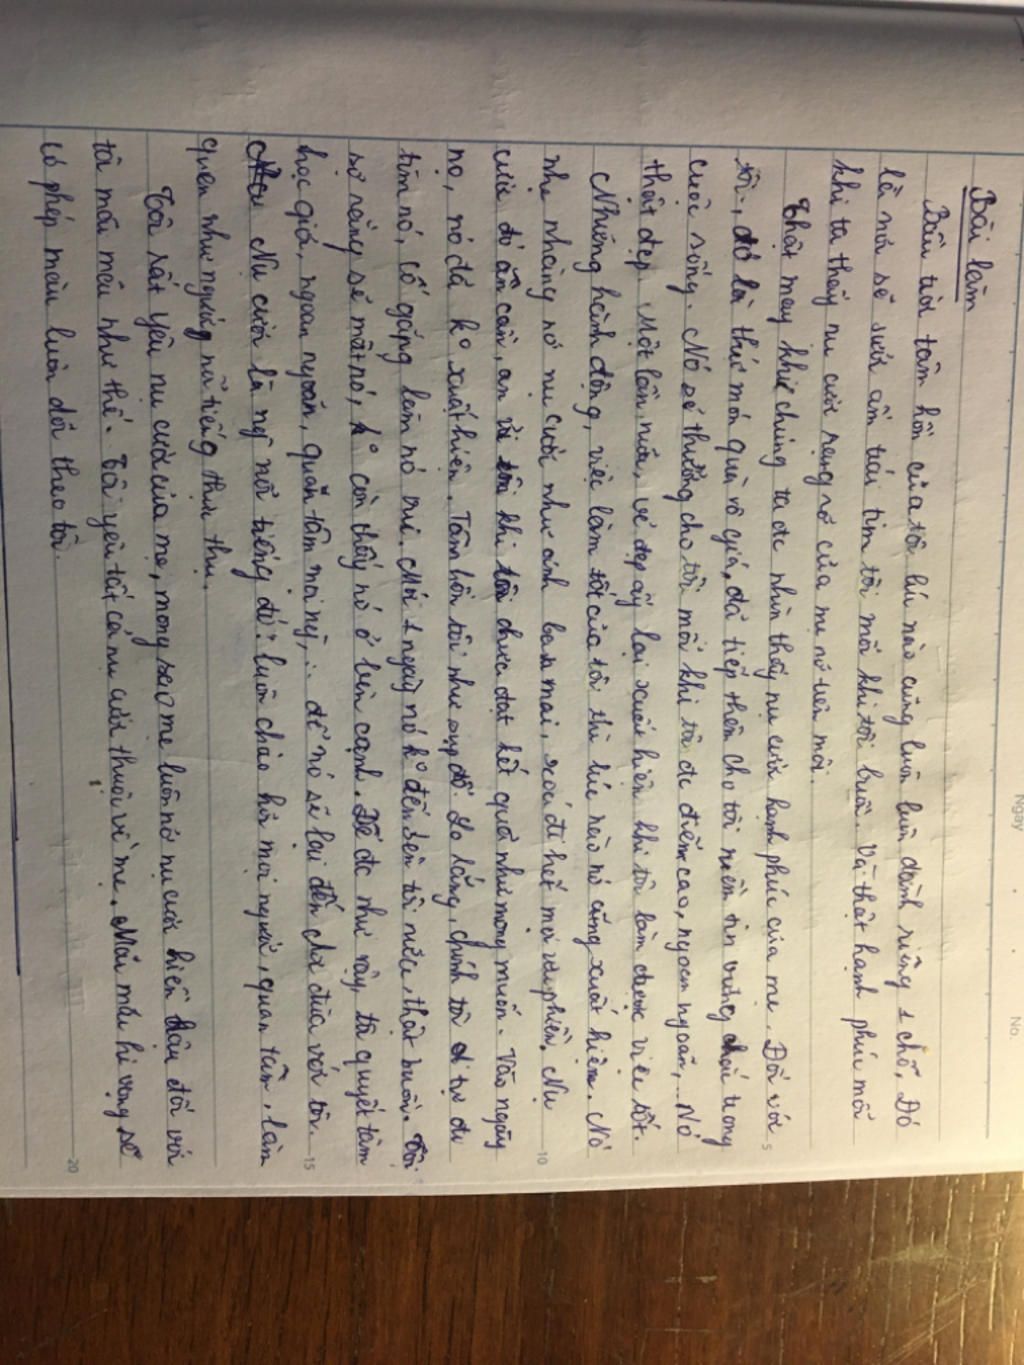 Ngày
No.
Bài làm
Bầu trời tâm hồn của tôi lúc nào cũng luôn luôn dành riêng 1 chỗ, Đó
là nơi sẽ sưởi ấm trái tim tôi mỗi khi tôi buồn. Và thật hạnh phúc mỗi
khi ta thấy nụ cười rạng rỡ của mẹ nở trên môi.
Thật may khi chúng ta đc nhìn thấy nụ cười hạnh phúc của mẹ. Đối với
tôi, đó là thứ món quà vô giá, đã tiếp thêm cho tôi niềm tin vững chắc trong
5
cuộc sống. Nó sẽ thưởng cho tôi mỗi khi tôi đc điểm cao, ngoan ngoãn,... Nó
thật đẹp. Một lần nữa, vẻ đẹp ấy lại xuất hiện khi tôi làm được việc tốt.
Những hành động, việc làm tốt của tôi thì lúc nào nó cũng xuất hiện. Nó
nhẹ nhàng nở nụ cười như ánh ban mai, xoá đi hết mọi ưu phiền. Nụ
10
cười đó ân cần, an ủi khi tôi chưa đạt kết quả như mong muốn. Vào ngày
nọ, nó đã k° xuất hiện. Tâm hồn tôi như sụp đổ. Lo lắng, chính tôi đi tự đi
tìm nó, cố gắng làm nó vui. Mới 1 ngày nó k° đến bên tôi nữa, thật buồn. Tôi
sợ rằng sẽ mất nó, k° còn thấy nó ở bên cạnh. Để đc như vậy, tôi quyết tâm
học giỏi, ngoan ngoãn, quan tâm mọi ng,... để nó sẽ lại đến chơi đùa với tôi.
15
Nụ cười là ng nổi tiếng đó: luôn chào hỏi mọi người, quan tâm, làm
quen như người nổi tiếng thực thụ.
Tôi rất yêu nụ cười của mẹ, mong sao mẹ luôn nở nụ cười hiền hậu đối với
tôi mãi mãi như thế. Tôi yêu tất cả nụ cười thuộc về mẹ. Mãi mãi hi vọng sẽ
20
có phép màu luôn dõi theo tôi.